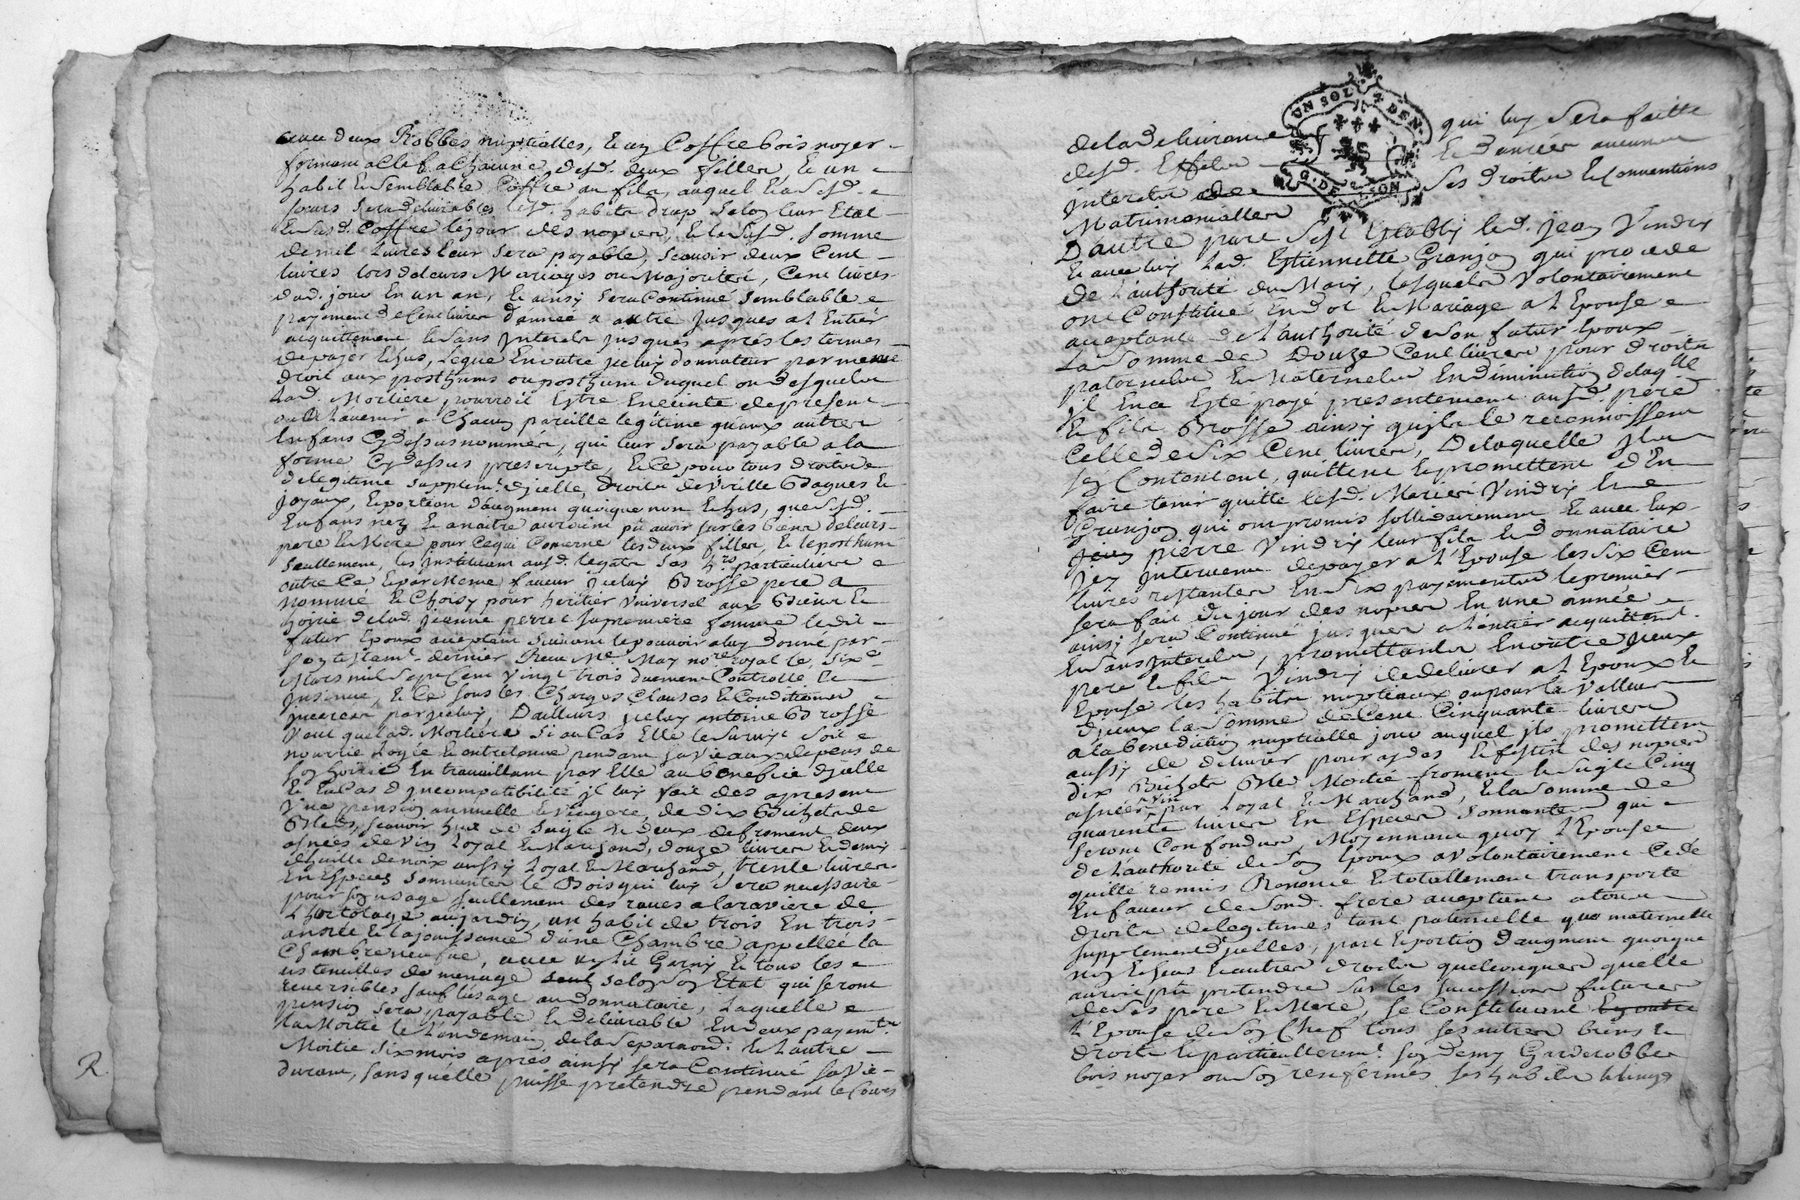 avec deux Robbes nuptialles, & un Coffre bois noyer
fermant a Clef a Chacune desd. deux filles, & un
habit & semblable Coffre au fils, auquel & a sesd.
sœurs sera delivrables lesd. habits drap selon leur Etat
& lesd. Coffre le jour des nopces, & la susd. somme
de mil livres leur sera payable, scavoir deux Cent
livres lors de leurs Mariages ou Majorités, Cent livres
dud. jour En un an, & ainsy sera Continué semblable
payement de Cent livres d'année a autre jusques a l Entier
acquittement & sans Interets jusques apres les termes
de payer Echus, legue En outre iceluy donnateur par meme
droit aux posthums ou posthume duquel ou desquels
lad. Mortiere pourroit Estre Enceinte de present
ou a l avenir a Chacun pareille legitime qu'aux autres
Enfans Cy dessus nommés, qui leur sera payable a la
forme Cy dessus prescripte, & Ce pour tous droits
de legitime supplemt. d'jcelle, droits de virille Bagues &
joyaux, & portion d'augment quoique non Echus, que sesd.
Enfans nez & a naitre auroient pû avoir sur les biens de leurs
pere & Mere pour Ce qui Concerne les deux filles, & le posthum
seullement, les Instituant aud. legats ses hrs. particuliers
outre Ce & par Meme faveur jceluy Brosse pere a
nommé & Choisy pour heritier Universel aux Biens &
hoirie de lad. jeanne perret sa premiere femme led.
futur Epoux acceptant suivant le pouvoir a luy donné par
son testamt. dernier Receu Me. May nore. royal le six
Mars mil sept Cent vingt trois duement Controllé &
Insinué, & Ce sous les Charges Clauses & Conditions
Inserées par jceluy, D'ailleurs jceluy antoine Brosse
veut que lad. Mortiere si au Cas Elle le survit soit
nourrie Logée & entretenue pendant sa vie aux depens de
son hoirie En travaillant par Elle au benefice d'jcelle
& En Cas d'jncompatibilité jl luy fait des a present
Une pension annuelle & viagere, de dix Bichets de
Bled, scavoir huit de seigle & deux de froment deux
asnées de vin Loyal & Marchand, douze livres & demy
d'huille de noix aussy Loyal & Marchand, trente livres
En Especes sonnantes le Bois qui luy sera necessaire
pour son usage seullement des raves a la raviere de
l'hortolage au jardin, un habit de trois En trois
années & la jouissance d'une Chambre appellée la
Chambre neufve, avec un lit Garny & tous les
ustenciles de menage selon son Etat qui seront
reversibles sauf l'usage au donnataire, Laquelle
pension sera payable & delivrable En deux payemts.
La Moitié le Landemain de la separaon. & l autre
Moitié six mois apres ainsy sera Continué sa vie
durant, sans qu'elle puisse pretendre pendant le Cours
R
UN SOL 4 DEN.
G. DE LYON
de la delivrance qui luy sera faitte
desd. Effets & d'ancier aucuns
Interets de ses droits & Conventions
Matrimonialles
D'autre part s'est Etably led. jean Vindry
& avec luy Lad. Estiennette Granjon qui procede
de l'authorité du Mary, lesquels volontairement
ont Constitué En dot & Mariage a l Epouse
acceptante de l'authorité de son futur Epoux
La somme de Douze Cent livres pour droits
paternels & Maternels En diminution de laqlle
jl En a Esté payé presentement aud. pere
& fils Brosse ainsy qu'ils le reconnoissent
Celle de six Cent livres, De laquelle jls
s'En Contentent, quittent & promettent d'En
faire tenir quitte lesd. Mariés Vindry &
Granjon qui ont promis sollidairement & avec Eux
pierre Vindry leur fils & donnataire
jcy Intervenu de payer a l'Epouse les six Cent
livres restantes En six payements le premier
sera fait du jour des nopces En une année
ainsy sera Continué jusques a l entier acquittemt.
& sans Interets, promettants En outre jceux
pere & fils Vindry de delivrer a l Epoux &
Epouse les habits nuptiaux ou pour la Valleur
d'jceux la somme de Cent Cinquante livres
a la benediction nuptialle jour auquel jls promettent
aussy de delivrer pour aydes le festin des nopces
dix Bichets Bled Moitié froment & Seigle Cinq
asnées vin pur Loyal & Marchand, & la somme de
quarente livres En Especes sonnantes qui
seront Confondues, Moyennant quoy l'Epouse
de l'authorité de son Epoux a volontairement Cede
quitté remis Renoncé & totallement transporté
En faveur de sond. frere acceptant a tous
droits de legitimes tant paternelle que maternelle
supplement d'jcelles, part & portion d'augment quoique
non Echus & autres droits quelconques qu'elle
auroit pû pretendre sur les successions futures
de ses pere & Mere, se Constituant
l'Epouse de son Chef tous ses autres biens &
droits & particullieremt. son demy Garderobbe
bois noyer ou son renfermés ses habits & linges